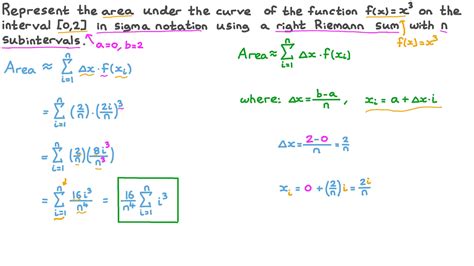 Represent the area under the curve of the function f(x)=x³ on the
interval [0,2] in sigma notation using a right Riemann sum with n
subintervals. a=0, b=2 f(x)=x³
Area ≈ n∑i=1 Δx·f(xᵢ)
= n∑i=1 (2/n)·(2i/n)³
= n∑i=1 (2/n)(8i³/n³)
= n∑i=1 16i³/n⁴ = 16/n⁴ n∑i=1 i³
Area ≈ n∑i=1 Δx·f(xᵢ)
where: Δx = b-a/n, xᵢ = a+Δx·i
Δx = 2-0/n = 2/n
xᵢ = 0+(2/n)i = 2i/n